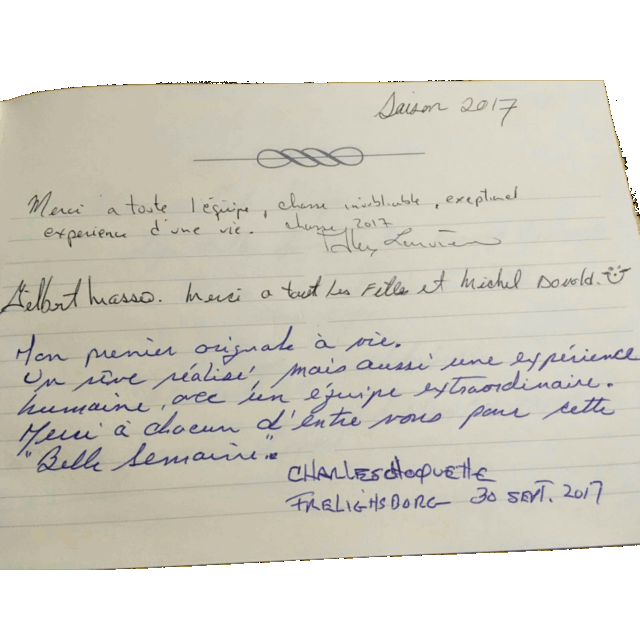 Saison 2017
Merci a toute l'équipe, chasse inoubliable, exeptionel
experience d'une vie. chasse 2017
Merci a tout les Fille et Michel Donold. 
Mon premier orignale à vie.
Un rêve réalisé, mais aussi une expérience
humaine avec un équipe extraordinaire.
Merci à chacun d'entre vous pour cette
"Belle Semaine".
CHARLES CHOQUETTE
FRELIGHSBORG 30 SEPT. 2017